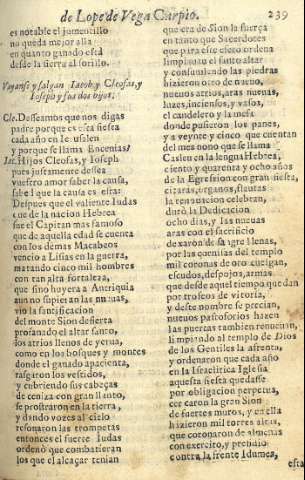 de Lope de Vega Carpio. 239
es notable el jumentillo
no queda mejor alla
en quanto ganado està
desde la sierra al sotillo.
Vayanse, y salgan Iacob, y Cleofas, y
Ioseph sus dos hijos.
Cle. Desseamos que nos digas
padre porque es esta fiesta
cada año en Ierusalen
y porque se llama Encenias?
Iac. Hijos Cleofas, y Ioseph
pues justamente dessea
vuestro amor saber la causa,
sabed que la causa es esta:
Despues que el valiente Iudas
que de la nacion Hebrea
fue el Capitan mas famoso
que de aquella edad se cuenta
con los demas Macabeos
vencio a Lisias en la guerra,
matando cinco mil hombres
con tan alta fortaleza,
que sino huyera a Antiquia
aun no supieran las nueuas,
vio la santificacion
del monte Sion desierta
profanado el altar santo,
los atrios llenos de yerua,
como en los bosques y montes
donde el ganado apacienta,
rasgaron los vestidos,
y cubriendo sus cabeças
de ceniza con gran llanto,
se prostraron en la tierra,
y dando vozes al cielo
resonaron las trompetas
entonces el fuerte Iudas
ordenò que combatieran
los que el alcaçar tenian
que era de Sion la fuerça
en tanto que Sacerdotes
que para este efeto ordena
limpiauan el santo altar
y consumiendo las piedras
hizieron otro de nueuo,
nueuos atrios, aras nueuas,
luzes, inciensos, y vasos,
el candelero y la mesa
donde pusieron los panes,
y a veynte y cinco que cuentan
del mes nono que se llama
Casleu en la lengua Hebrea,
ciento y quarenta y ocho años
de la Egresion con gran fiesta,
citaras, organos, flautas
la renouacion celebran,
durò la Dedicacion
ocho dias, y las nueuas
aras con el sacrificio
de varon de sangre llenas,
por las cornijas del templo
mil coronas de oro cuelgan,
escudos, despojos, armas
que desde aquel tiempo quedan
por trofeos de vitoria,
y deste nombre se precian,
nueuos pastoforios hazen
las puertas tambien renueuan,
limpiando al templo de Dios
de los Gentiles la afrenta,
y ordenaron que cada año
en la Israelitica Iglesia
aquesta fiesta quedasse
por obligacion perpetua,
cercaron la gran Sion
de fuertes muros, y en ella
hizieron mil torres altas,
que coronaron de almenas
con exercito, y presidio
contra la frente Idumea,
esta